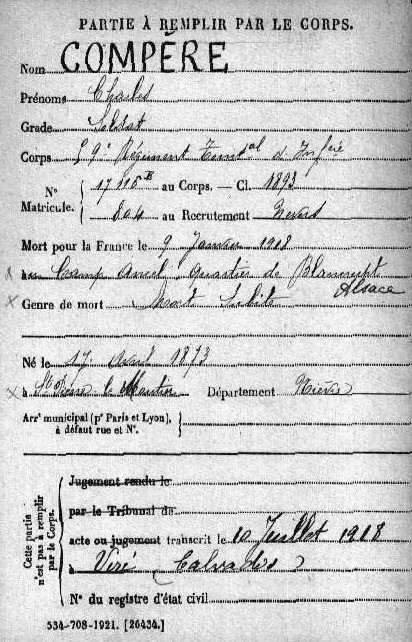 PARTIE À REMPLIR PAR LE CORPS.
Nom COMPÈRE
Prénoms Charles
Grade Soldat
Corps 59e Régiment Territal d'Infrie
N° Matricule. 17 au Corps. — Cl. 1893
804 au Recrutement Nevers
Mort pour la France le 9 Janvier 1918
au Camp quartier de
Alsace
Genre de mort Mort Subite
Né le 17 Avril 1873
à St Pierre le Moutier Département Nièvre
Arrt municipal (pr Paris et Lyon),
à défaut rue et N°.
Cette partie n'est pas à remplir par le Corps.
Jugement rendu le
par le Tribunal de
acte ou jugement transcrit le 10 Juillet 1918
à Viré (Calvados)
N° du registre d'état civil
534-708-1921. [26434.]